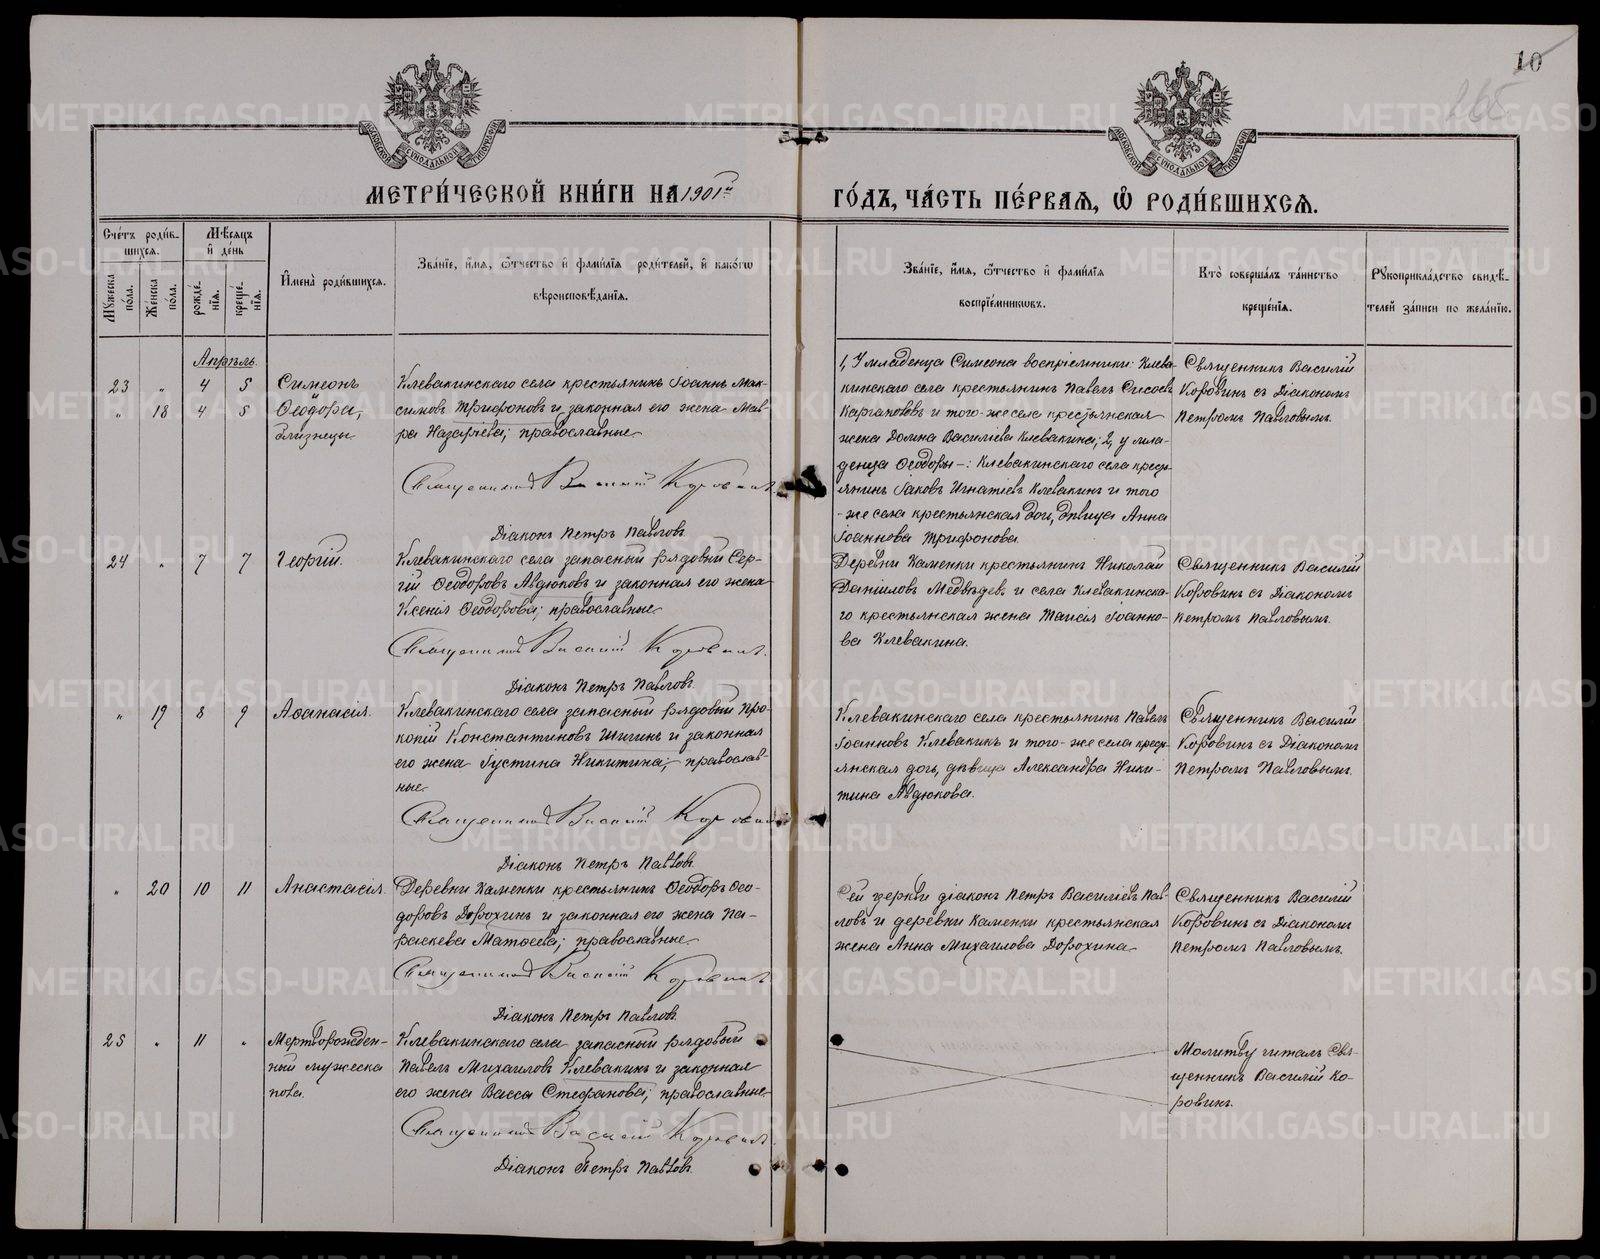 10
265
МОСКОВСКОЙ СѴНОДАЛЬНОЙ ТИПОГРАФІИ
МОСКОВСКОЙ СѴНОДАЛЬНОЙ ТИПОГРАФІИ
МЕТРИ́ЧЕСКОЙ КНИ́ГИ НА 1901й
ГО́ДЪ, ЧА́СТЬ ПЕ́РВАѦ, Ѽ РОДИ́ВШИХСѦ.
Сче́тъ роди́в-
шихсѧ.
Мꙋ́жеска по́ла.
Же́нска по́ла.
Мѣ́сѧцъ
и҆ де́нь
рожде́-нїѧ.
креще́-нїѧ.
И҆мена̀ роди́вшихсѧ.
Зва́нїе, и҆́мѧ, ѻ҆́тчество и҆ фами́лїѧ роди́телей, и҆ како́гѡ
вѣроисповѣ́данїѧ.
Зва́нїе, и҆́мѧ, ѻ҆́тчество и҆ фами́лїѧ
воспрїе́мникѡвъ.
Кто̀ соверша́лъ та́инство
креще́нїѧ.
Рꙋкоприкла́дство свидѣ́-
телей за́писи по жела́нїю.
Апрѣль.
23 „ 4 5 Симеонъ
„ 18 4 5 Ѳеодора,
близнецы
Клевакинскаго села крестьянинъ Іоаннъ Мак-
симовъ Трифоновъ и законная его жена Мав-
ра Назаріева; православные
Священникъ Василій Коровинъ
Діаконъ Петръ Павловъ
1, У младенца Симеона воспріемники: Клева-
кинскаго села крестьянинъ Павелъ Сысоевъ
Каргаполовъ и того-же села крестьянская
жена Домна Василіева Клевакина; 2, у мла-
денца Ѳеодоры -: Клевакинскаго села крест-
янинъ Іаковъ Игнатіевъ Клевакинъ и того
-же села крестьянская дочь, дѣвица Анна
Іоаннова Трифонова.
Священникъ Василій
Коровинъ съ Діакономъ
Петромъ Павловымъ.
24 „ 7 7 Георгій.
Клевакинскаго села запасный рядовый Сер-
гій Ѳеодоровъ Авдюковъ и законная его жена
Ксенія Ѳеодорова; православные
Священникъ Василій Коровинъ.
Діаконъ Петръ Павловъ.
Деревни Каменки крестьянинъ Николай
Даніиловъ Медвѣдевъ и села Клевакинска-
го крестьянская жена Таисія Іоанно-
ва Клевакина.
Священникъ Василій
Коровинъ съ Діакономъ
Петромъ Павловымъ.
„ 19 8 9 Аѳанасія.
Клевакинскаго села запасный рядовый Про-
копій Константиновъ Шигинъ и законная
его жена Іустина Никитина; православ-
ные
Священникъ Василій Коровинъ
Діаконъ Петръ Павловъ.
Клевакинскаго села крестьянинъ Павелъ
Іоанновъ Клевакинъ и того-же села крест-
янская дочь, дѣвица Александра Ники-
тина Авдюкова.
Священникъ Василій
Коровинъ съ Діакономъ
Петромъ Павловымъ.
„ 20 10 11 Анастасія.
Деревни Каменки крестьянинъ Ѳеодоръ Ѳео-
доровъ Дорохинъ и законная его жена Па-
раскева Матѳеева; православные
Священникъ Василій Коровинъ
Діаконъ Петръ Павловъ.
Сей церкви діаконъ Петръ Василіевъ Пав-
ловъ и деревни Каменки крестьянская
жена Анна Михаилова Дорохина
Священникъ Василій
Коровинъ съ Діакономъ
Петромъ Павловымъ.
25 „ 11 „ Мертворожден-
ный мужеска
пола.
Клевакинскаго села запасный рядовый
Павелъ Михаиловъ Клевакинъ и законная
его жена Васса Стефанова; православные
Священникъ Василій Коровинъ.
Діаконъ Петръ Павловъ.
Молитву читалъ Свя-
щенникъ Василій Ко-
ровинъ.
METRIKI.GASO-URAL.RU